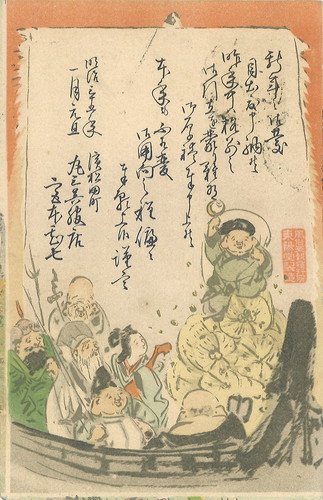 新年之御慶
目出度申納候
昨年中ハ種々
御引立を蒙り難有
御礼申上候
本年も不相変
御用向之程偏に
奉願上候 謹言
明治 年
一月元旦
浜松田町
丸三呉服店
宮本甚七